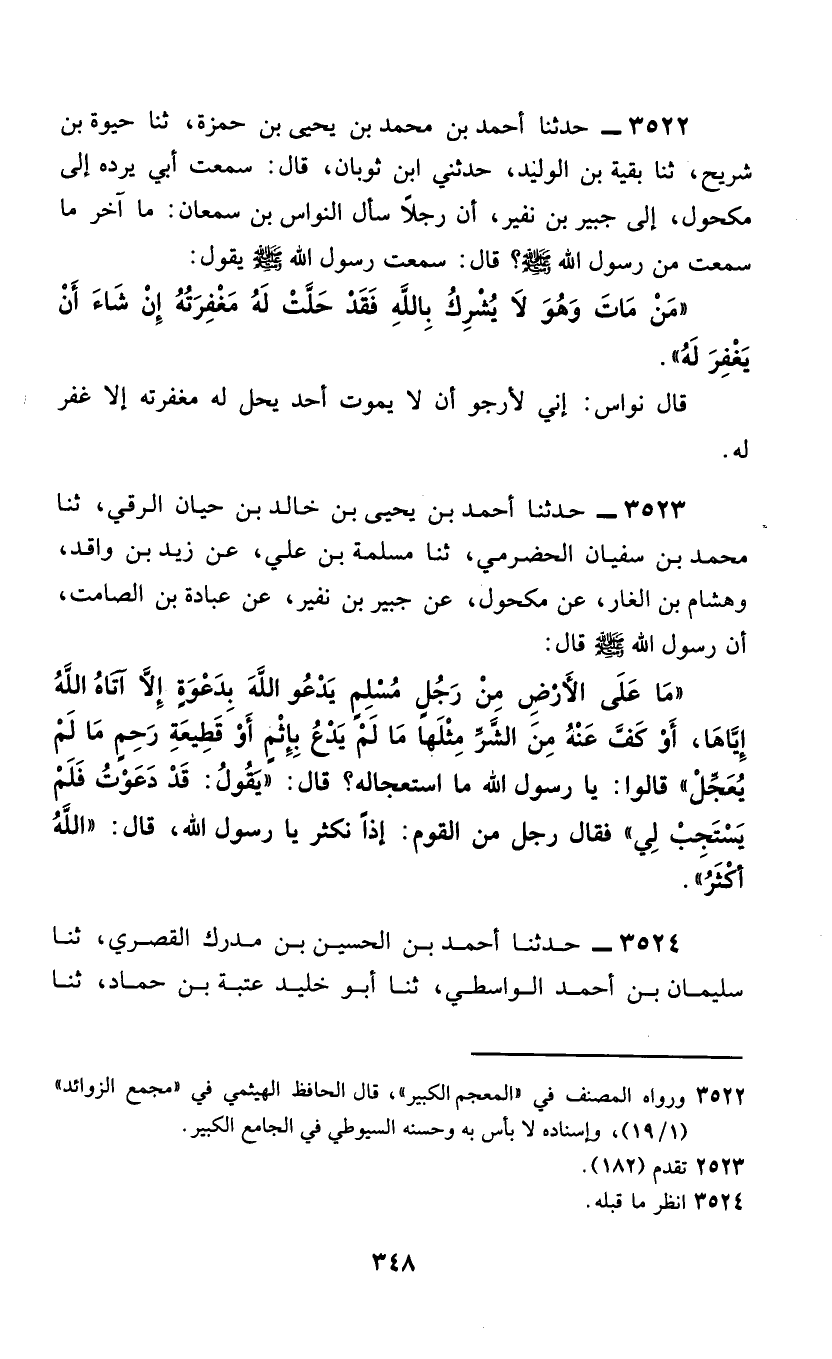 ٣٥٢٢ ـ حدثنا أحمد بن محمد بن يحيى بن حمزة، ثنا حيوة بن
شريح، ثنا بقية بن الوليد، حدثني ابن ثوبان، قال: سمعت أبي يرده إلى
مكحول، إلى جبير بن نفير، أن رجلاً سأل النواس بن سمعان: ما آخر ما
سمعت من رسول الله ﷺ؟ قال: سمعت رسول الله ﷺ يقول:
«مَنْ مَاتَ وَهُوَ لَا يُشْرِكُ بِاللَّهِ فَقَدْ حَلَّتْ لَهُ مَغْفِرَتُهُ إِنْ شَاءَ أَنْ
يَغْفِرَ لَهُ».
قال نواس: إني لأرجو أن لا يموت أحد يحل له مغفرته إلا غفر
له.
٣٥٢٣ ـ حدثنا أحمد بن يحيى بن خالد بن حيان الرقي، ثنا
محمد بن سفيان الحضرمي، ثنا مسلمة بن علي، عن زيد بن واقد،
وهشام بن الغار، عن مكحول، عن جبير بن نفير، عن عبادة بن الصامت،
أن رسول الله ﷺ قال:
«مَا عَلَى الأَرْضِ مِنْ رَجُلٍ مُسْلِمٍ يَدْعُو اللَّهَ بِدَعْوَةٍ إِلاَّ آتَاهُ اللَّهُ
إِيَّاهَا، أَوْ كَفَّ عَنْهُ مِنَ الشَّرِّ مِثْلَهَا مَا لَمْ يَدْعُ بِإِثْمٍ أَوْ قَطِيعَةِ رَحِمٍ مَا لَمْ
يُعَجِّلْ» قالوا: يا رسول الله ما استعجاله؟ قال: «يَقُولُ: قَدْ دَعَوْتُ فَلَمْ
يَسْتَجِبْ لِي» فقال رجل من القوم: إذاً نكثر يا رسول الله، قال: «اللَّهُ
أَكْثَرُ».
٣٥٢٤ ـ حدثنا أحمد بن الحسين بن مدرك القصري، ثنا
سليمان بن أحمد الواسطي، ثنا أبو خليد عتبة بن حماد، ثنا
٣٥٢٢ ورواه المصنف في «المعجم الكبير»، قال الحافظ الهيثمي في «مجمع الزوائد»
(١٩/١)، وإسناده لا بأس به وحسنه السيوطي في الجامع الكبير.
٢٥٢٣ تقدم (١٨٢).
٣٥٢٤ انظر ما قبله.
٣٤٨